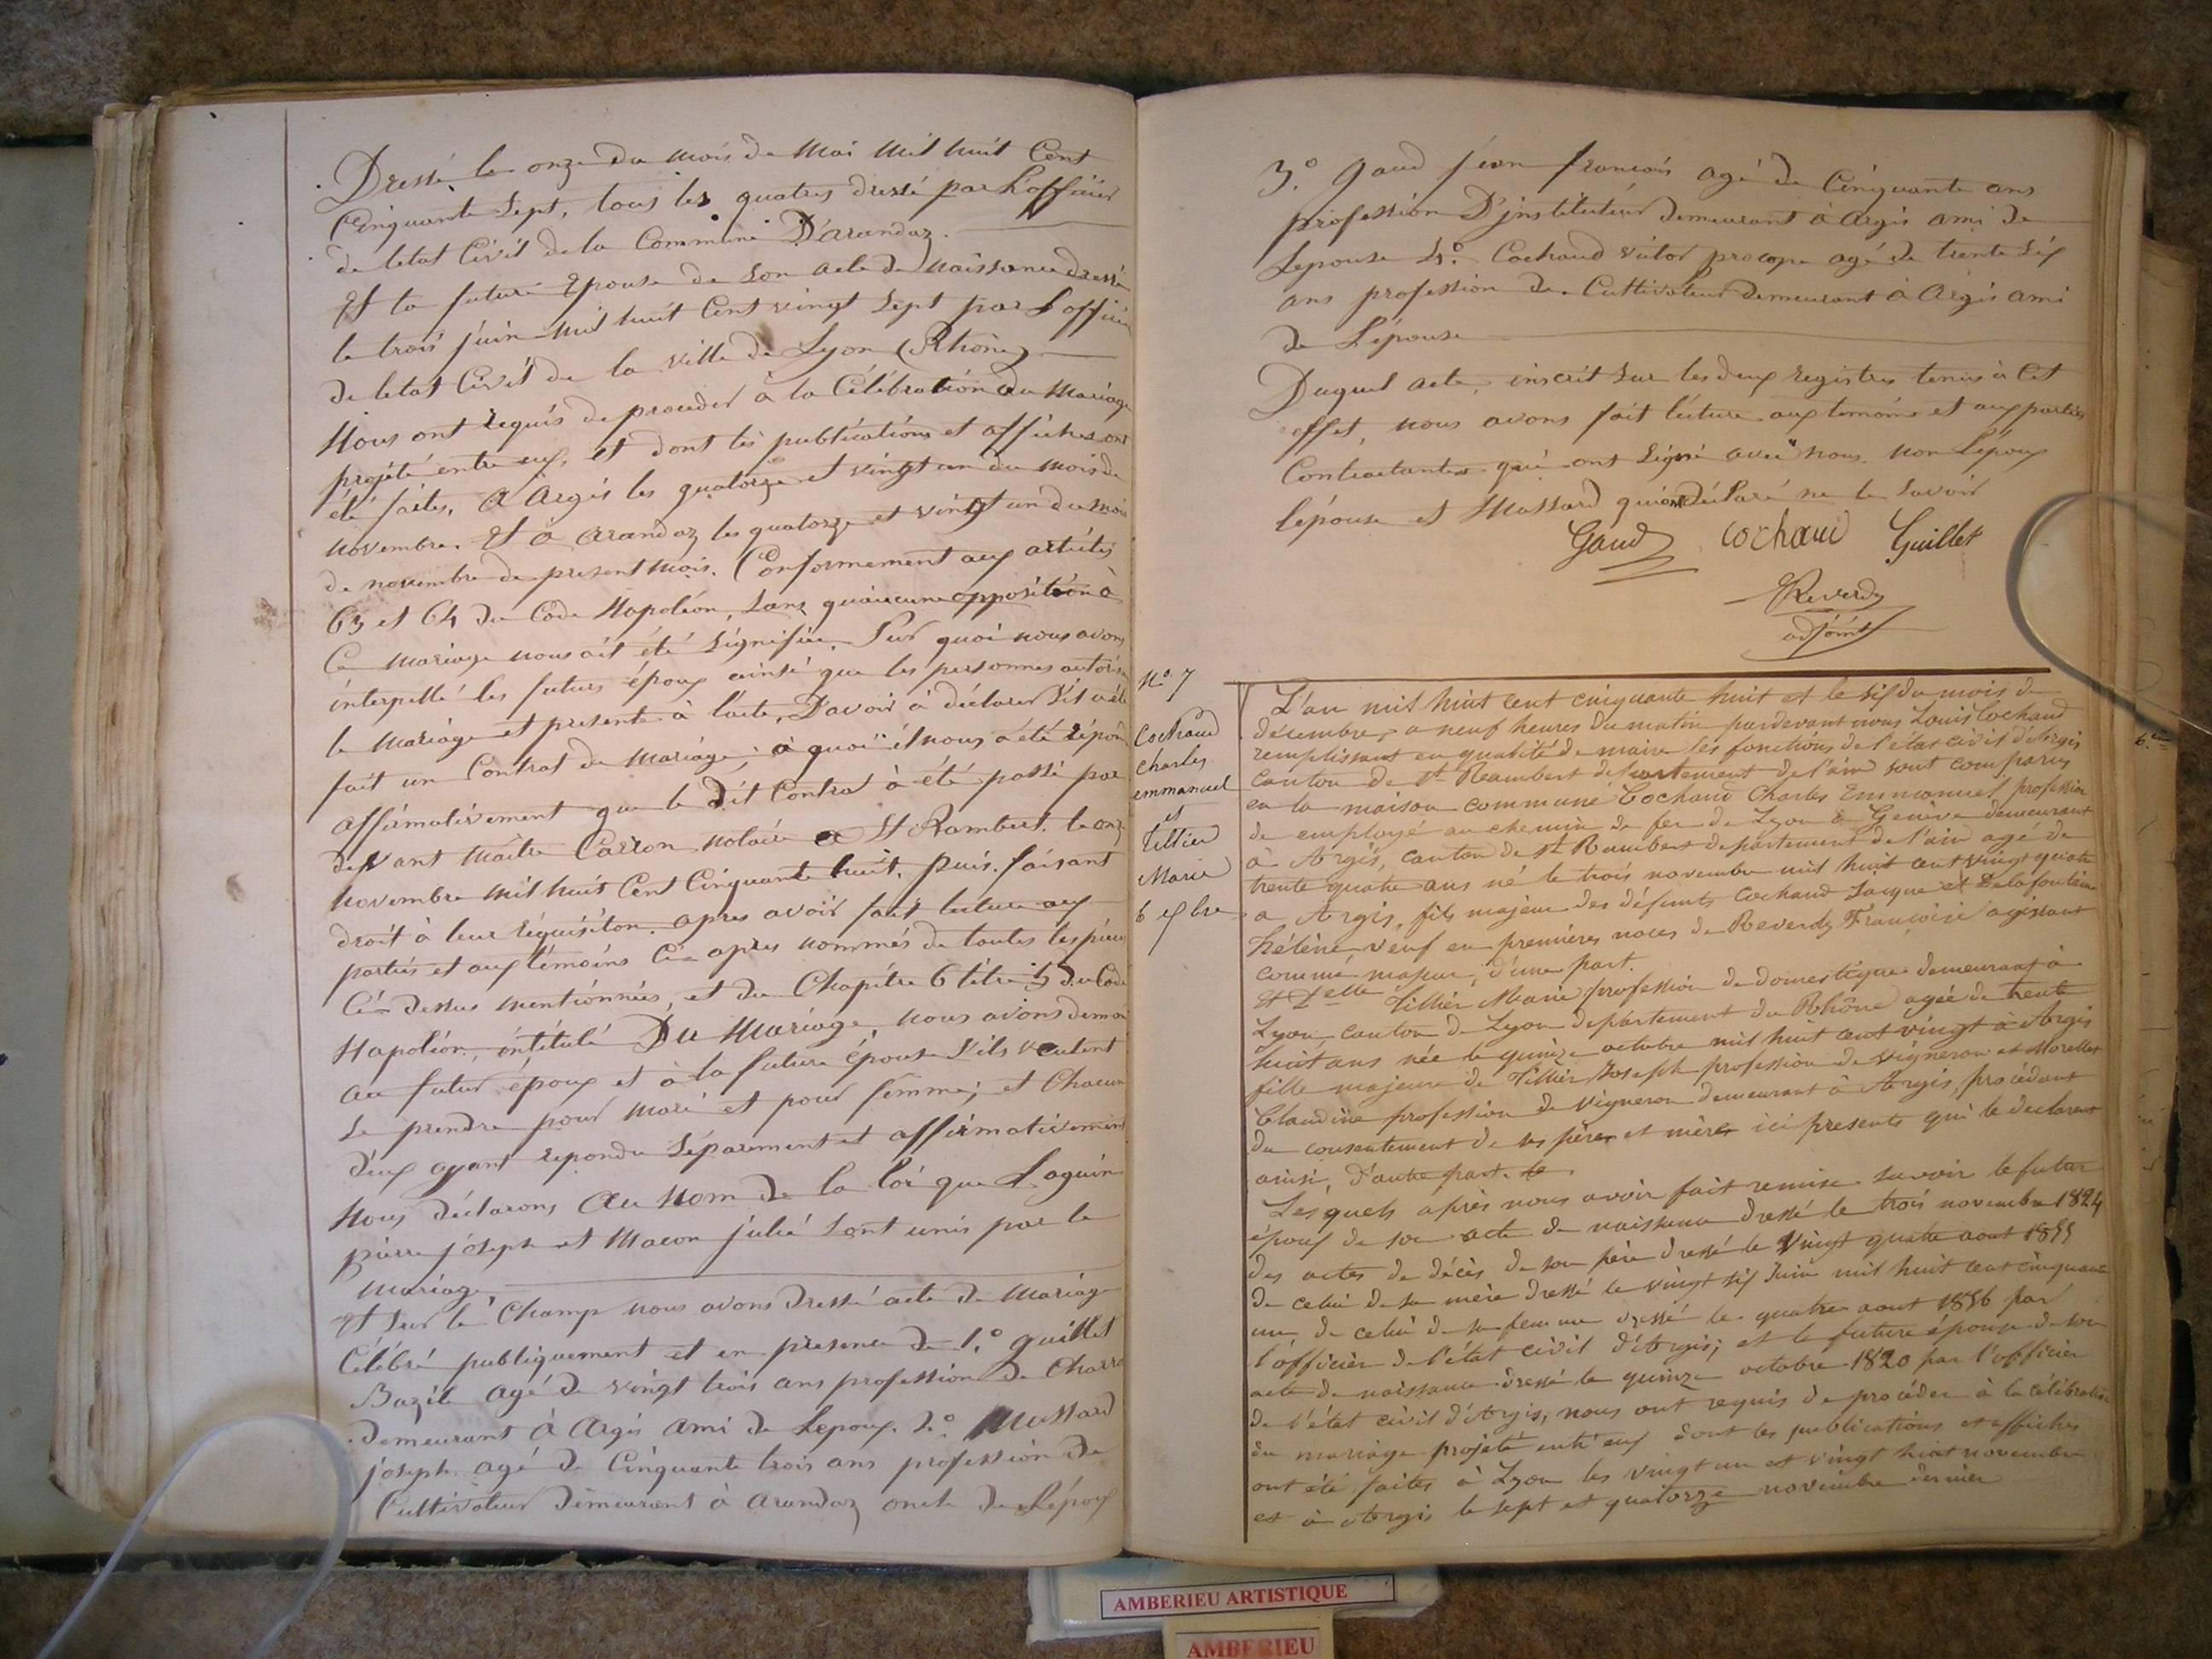 Dressé le onze du mois de Mai mil huit Cent
Cinquante Sept, tous les quatres dressé par L'officier
de letat Civil de la Commune D'arandaz.
Et la future Epouse de Son acte de Naissance dressé
le trois juin mil huit Cent vingt Sept par L'officier
de letat Civil de la ville de Lyon (Rhône)
Nous ont requis de proceder à la Célébration du Mariage
projeté entre eux, et dont les publications et affiches ont
été faites, à Argis les quatorze et vingt un du mois de
novembre. Et à Arandaz les quatorze et vingt un du mois
de novembre de present mois. Conformement aux articles
63 et 64 du Code Napoléon, Sans qu'aucune opposition à
Ce mariage nous ait été Signifiée. Sur quoi nous avons
interpellé les futurs époux ainsi que les personnes autorisa
le mariage et presente à l'acte, D'avoir à déclarer S'il a été
fait un Contrat de Mariage; à quoi il nous a été répondu
affirmativement que le dit Contrat à été passé par
devant Maître Carron notaire a St Rambert. le onze
Novembre mil huit Cent Cinquante huit, puis. faisant
droit à leur réquisition. apres avoir fait lecture aux
parties et aux témoins Ci-apres nommés de toutes les pièces
Ci-dessus mentionnées, et du Chapitre 6 titre 5 du Code
Napoléon, intitulé Du Mariage, nous avons demandé
au futur époux et à la future Épouse S'ils veulent
Se prendre pour Mari et pour femme; et Chacun
d'eux ayant repondu Séparement et affirmativement
Nous déclarons Au Nom de la loi que Laguin
pierre joseph et Macon julie Sont unis par le
Mariage.
Et Sur le Champ nous avons dressé acte de Mariage
Célébré publiquement et en presence de 1.° guillet
Bazile agé de vingt trois ans profession de Charr
demeurant à Argis ami de Lepoux. 2.° Massard
joseph agé de Cinquante trois ans profession de
Cultivateur demeurant à Arandaz oncle de L'époux
3.° gaud jean francois agé de Cinquante ans
profession D'jnstituteur demeurant à Argis ami de
Lepouse 4.° Cochaud victor procope agé de trente Six
ans profession de Cultivateur demeurant à Argis ami
de L'épouse
Duquel acte, inscrit Sur les deux registres tenus à Cet
effet, nous avons fait lecture aux temoins et aux parties
Contractantes qui ont Signé avec nous non L'époux
l'épouse et Massard qui ont déclaré ne le Savoir
Gaud Cochaud Guillet
Reverdy
adjoint
No. 7
Cochaud
Charles
emmanuel
et
Tillier
Marie
6 xbre
L'an mil huit cent cinquante huit et le six du mois de
décembre, a neuf heures du matin pardevant nous Louis Cochaud
remplissant en qualité de maire les fonctions de l'état civil d'Argis
canton de St Rambert departement de l'ain sont comparus
en la maison commune Cochaud Charles Emmanuel profession
de employé au chemin de fer de Lyon à Genève demeurant
à Argis, canton de St Rambert departement de l'ain agé de
trente quatre ans né le trois novembre mil huit cent vingt quatre
a Argis, fils majeur des défunts Cochaud Jacque et Delafontaine
hélène veuf en premières noces de Reverdy Françoise agissant
comme majeur, d'une part.
Et Delle Tillier Marie profession de domestique demeurant à
Lyon, canton de Lyon département du Rhône agée de trente
huit ans née le quinze octobre mil huit cent vingt à Argis
fille majeure de Tillier Joseph profession de vigneron et Morellet
Claudine profession de vigneron demeurant à Argis, procédant
du consentement de ses père et mère ici presents qui le declarent
ainsi, d'autre part.
Lesquels après nous avoir fait remise savoir le futur
époux de son acte de naissance dressé le trois novembre 1824
des actes de décès de son père dressé le vingt quatre aout 1855
de celui de sa mère dressé le vingt six Juin mil huit cent cinquante
un de celui de sa femme dressé le quatre aout 1856 par
l'officier de l'état civil d'Argis; et la future épouse de son
acte de naissance dressé le quinze octobre 1820 par l'officier
de l'état civil d'Argis, nous ont requis de procéder à la célébration
du mariage projeté entr'eux dont les publications et affiches
ont été faites à Lyon les vingt un et vingt huit novembre
et à Argis le sept et quatorze novembre dernier
6.
AMBERIEU ARTISTIQUE
AMBERIEU